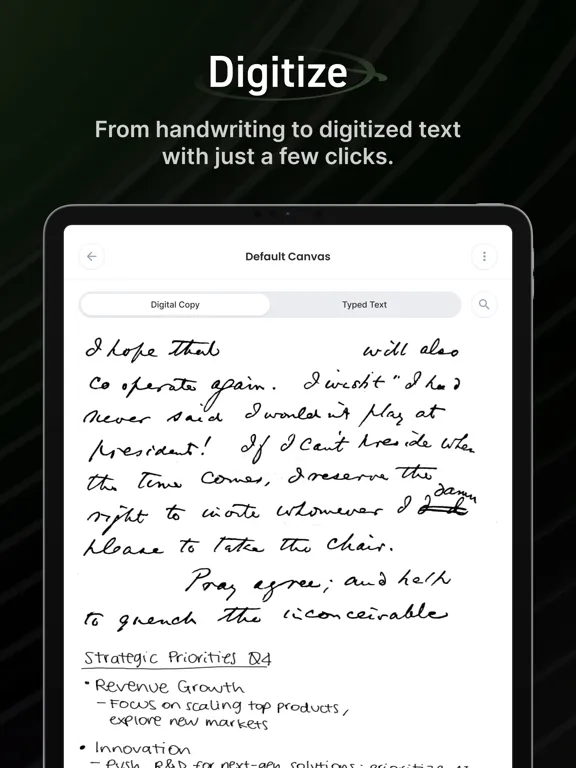 Digitize
From handwriting to digitized text
with just a few clicks.
Default Canvas
Digital Copy
Typed Text
I hope that will also
co operate again. I wish't "I had
never said I wouldn't play at
president! If I can't preside when
the time comes, I reserve the
right to invite whomever I damn
please to take the chair.
Pray agree; and help
to quench the inconceivable
Strategic Priorities Q4
• Revenue Growth
– Focus on scaling top products,
explore new markets
• Innovation
– Push R&D for next-gen solutions; prioritize